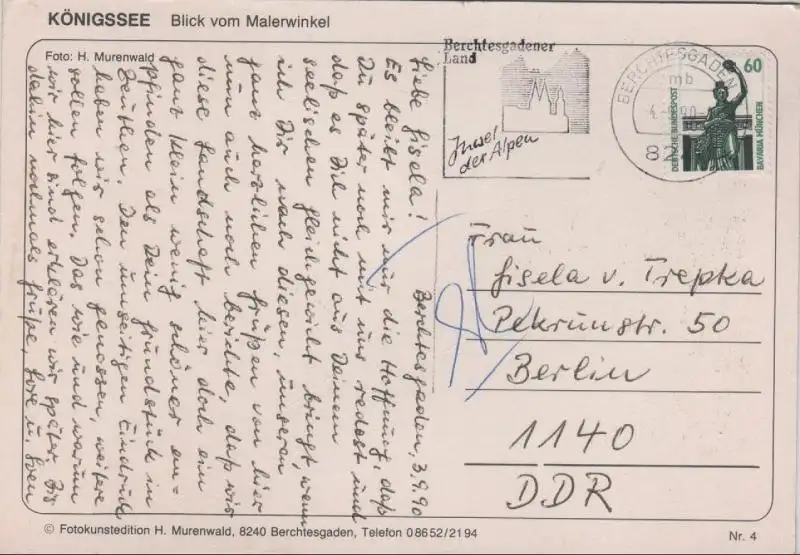 KÖNIGSSEE Blick vom Malerwinkel
Foto: H. Murenwald
Berchtesgaden, 3.9.90
Liebe Gisela!
Es bleibt mir nur die Hoffnung, daß
Du später noch mit uns redest und
daß es Dich nicht aus Deinem
seelischen Gleichgewicht bringt, wenn
ich Dir nach diesen, unseren
ganz herzlichen Grüßen von hier
nun auch noch berichte, daß wir
diese Landschaft hier doch ein
ganz klein wenig schöner em=
pfinden als Dein Grundstück in
Zeuthen. Den umseitigen Eindruck
haben wir schon genossen, weitere
sollen folgen. Das wie und warum
wir hier sind erklären wir später. Bis
dahin nochmals Grüße, Lore u. Sven
Berchtesgadener
Land
Insel
der Alpen
BERCHTESGADEN
mb
82
60
DEUTSCHE BUNDESPOST
BAVARIA MÜNCHEN
Frau
Gisela v. Trepka
Pekrunstr. 50
Berlin
1140
DDR
© Fotokunstedition H. Murenwald, 8240 Berchtesgaden, Telefon 08652/2194
Nr. 4